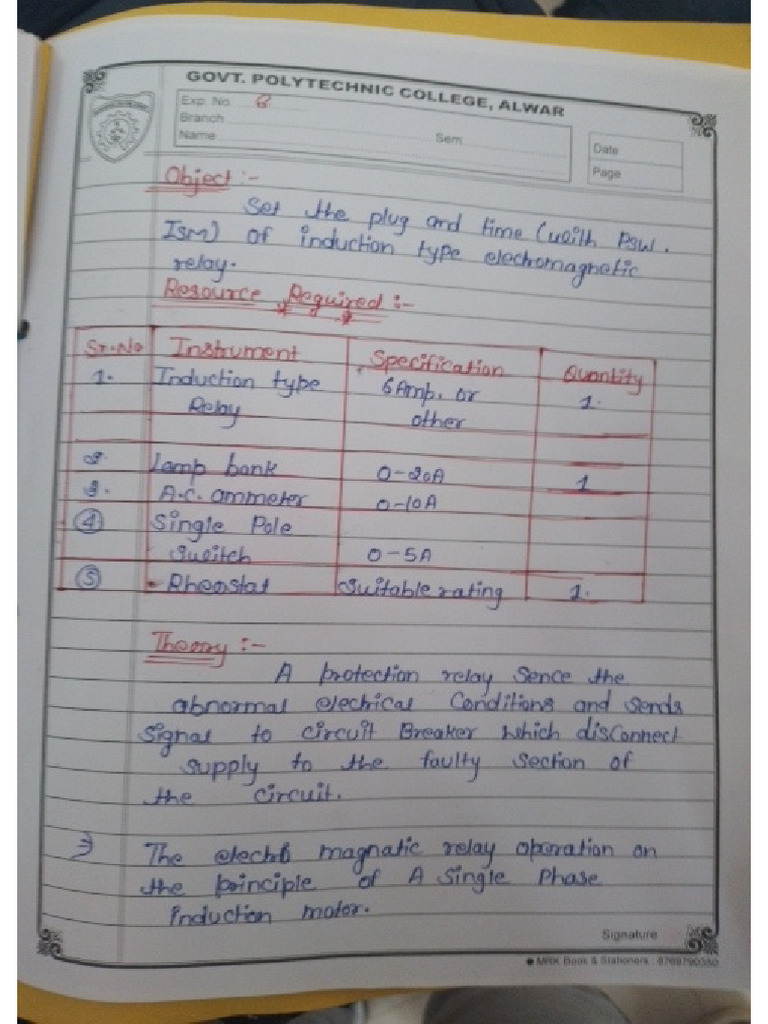 GOVT. POLYTECHNIC COLLEGE, ALWAR
Exp. No. 8
Branch
Name Sem
Date
Page
Object :-
Set the plug and time (with PSM.
TSM) of induction type electromagnetic
relay.
Resource Required :-
Sr.No Instrument Specification Quantity
1. Induction type 6 Amp. or 1.
Relay other
2. Lamp bank 0-20A 1
3. A.C. ammeter 0-10A
4 Single Pole
Switch 0-5A
5 Rheostat Suitable rating 1.
Theory :-
A protection relay Sence the
abnormal electrical Conditions and sends
Signal to circuit Breaker which disConnect
supply to the faulty Section of
the circuit.
The electro magnatic relay operation on
the principle of A Single Phase
induction motor.
Signature
MRK Book & Stationers : 8769790350